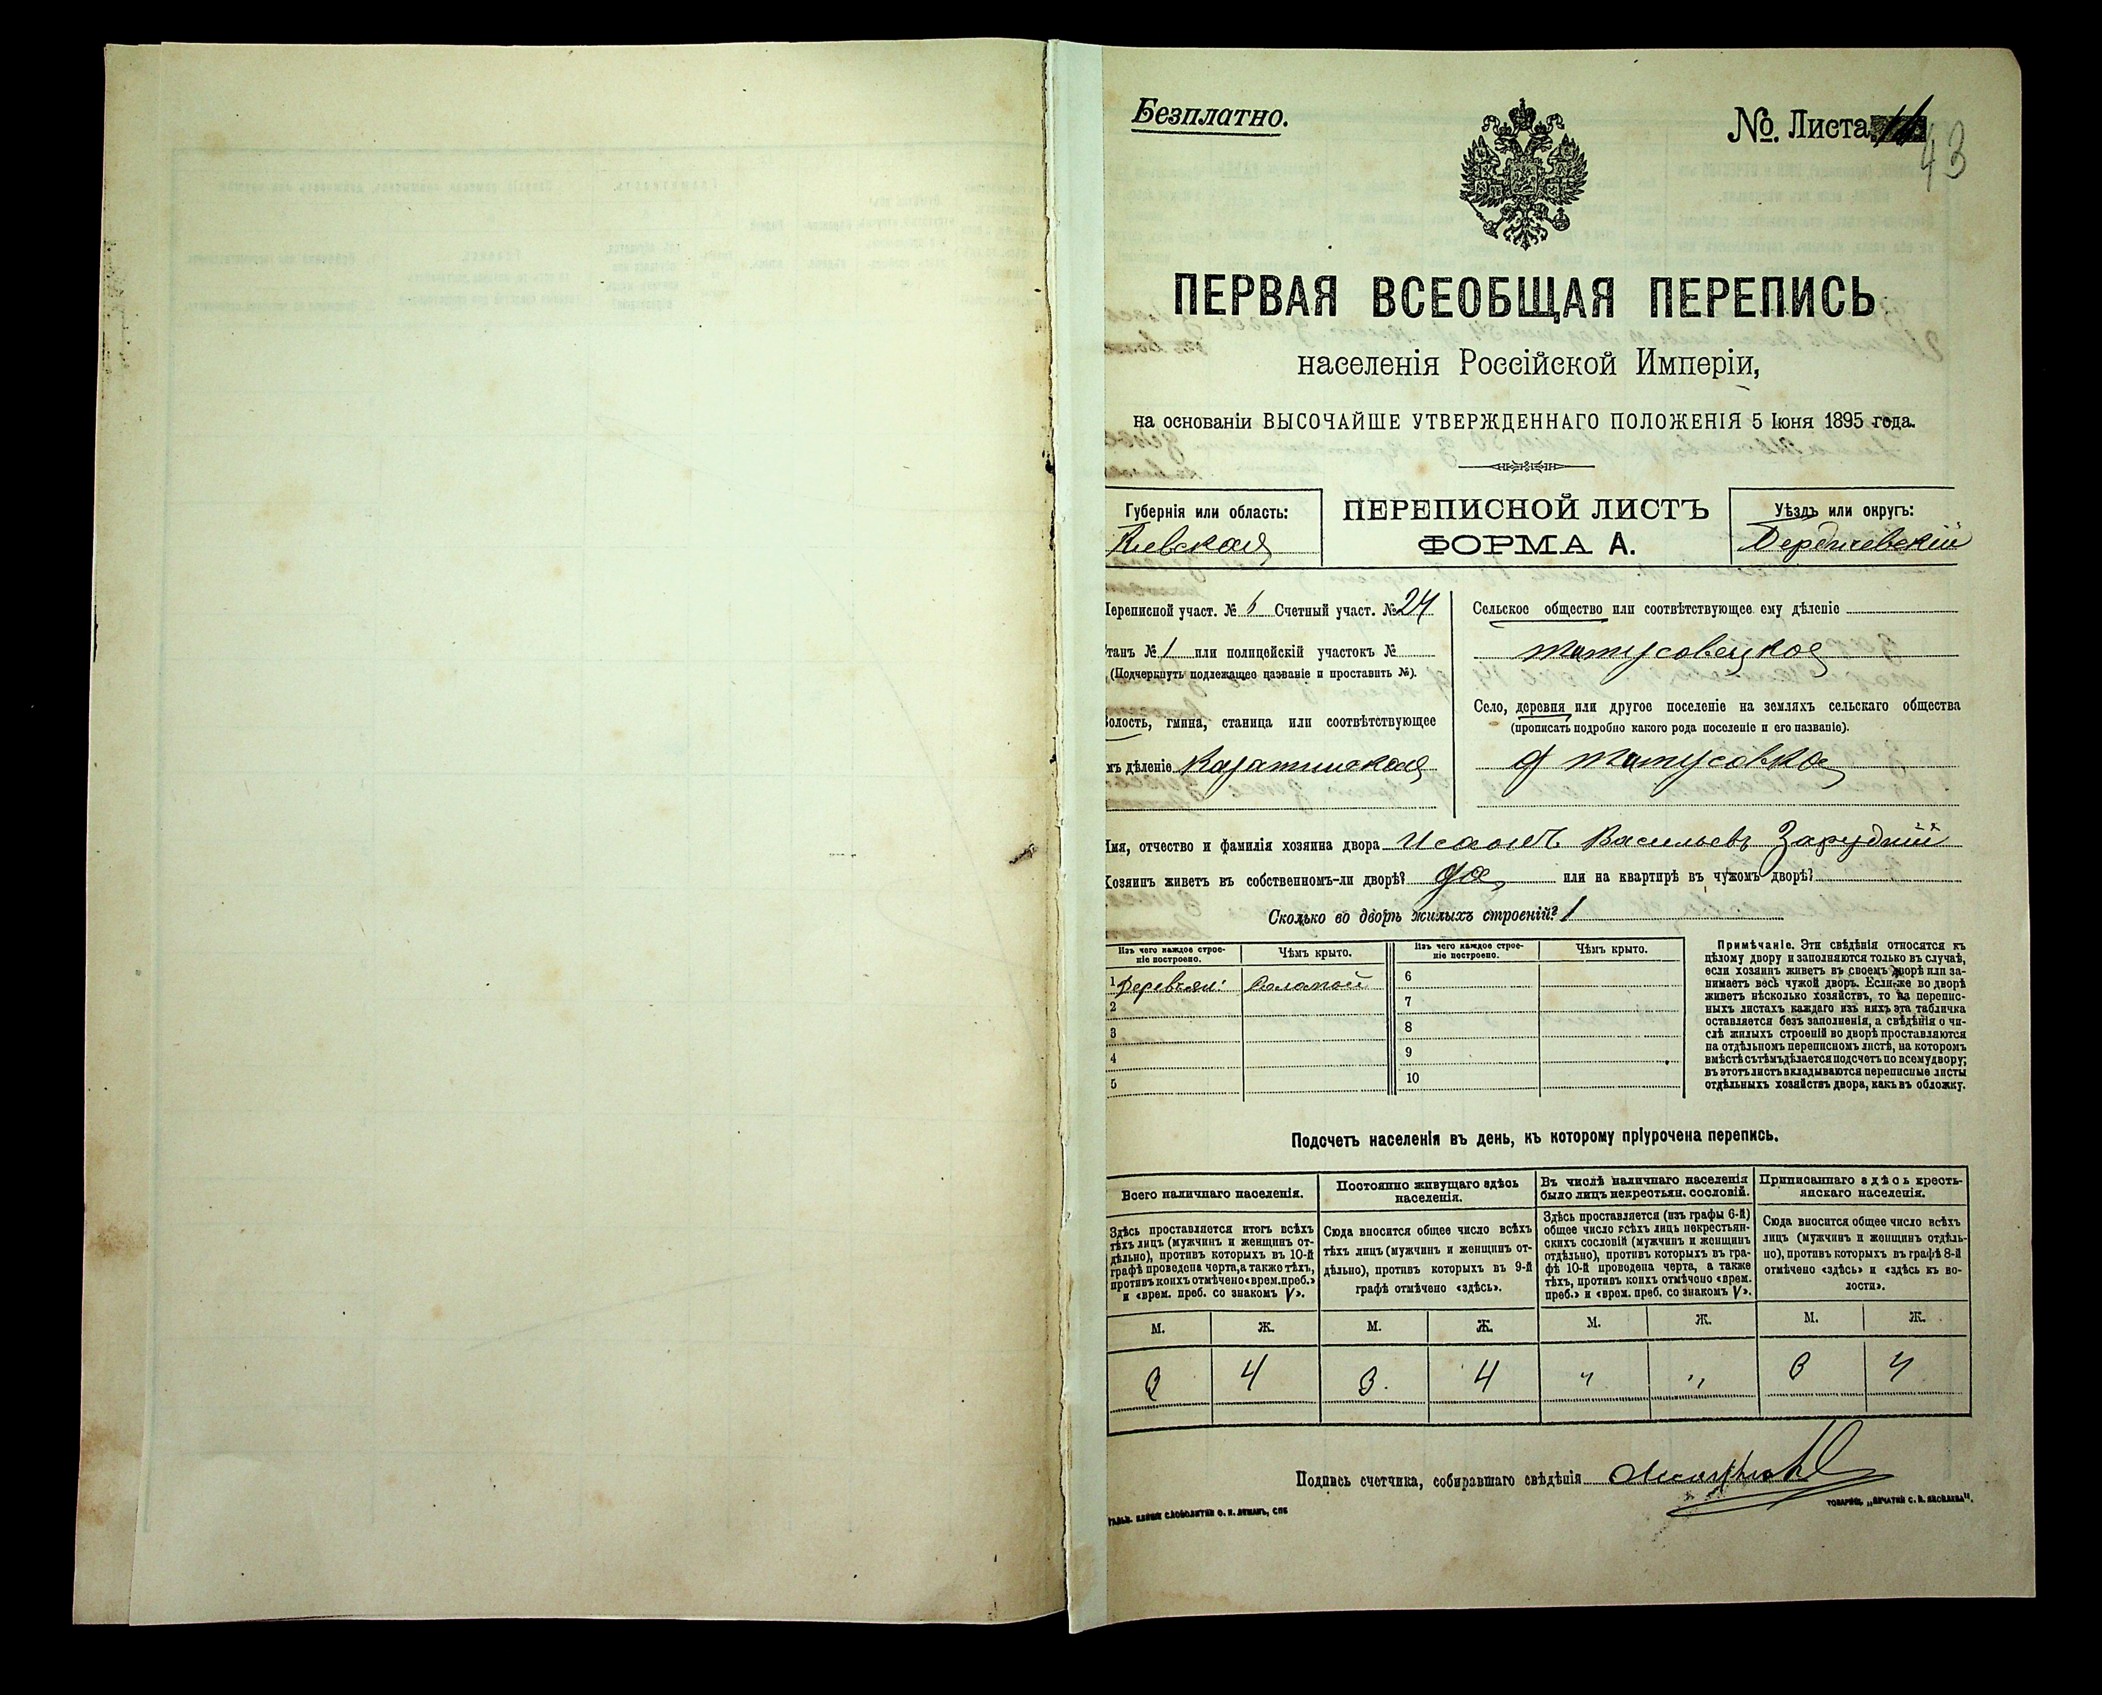 Безплатно.
№. Листа 11
43
ПЕРВАЯ ВСЕОБЩАЯ ПЕРЕПИСЬ
населенія Россійской Имперіи,
на основаніи ВЫСОЧАЙШЕ УТВЕРЖДЕННАГО ПОЛОЖЕНІЯ 5 Іюня 1895 года.
Губернія или область:
Кіевская
ПЕРЕПИСНОЙ ЛИСТЪ
ФОРМА А.
Уѣздъ или округъ:
Бердичевскій
Переписной участ. № 6 Счетный участ. № 24
танъ № 1 или полицейскій участокъ №
(Подчеркнуть подлежащее названіе и проставить №).
волость, гмина, станица или соотвѣтствующее
мъ дѣленіе
Сельское общество или соотвѣтствующее ему дѣленіе
Село, деревня или другое поселеніе на земляхъ сельскаго общества
(прописать подробно какого рода поселеніе и его названіе).
Имя, отчество и фамилія хозяина двора Исаакъ Васильевъ Зарудній
Хозяинъ живетъ въ собственномъ-ли дворѣ? да или на квартирѣ въ чужомъ дворѣ?
Сколько во дворѣ жилыхъ строеній? 1
Изъ чего каждое строе-
ніе построено.
Чѣмъ крыто.
Изъ чего каждое строе-
ніе построено.
Чѣмъ крыто.
1 Деревян: Соломой
2
3
4
5
6
7
8
9
10
Примѣчаніе. Эти свѣдѣнія относятся къ
цѣлому двору и заполняются только въ случаѣ,
если хозяинъ живетъ въ своемъ дворѣ или за-
нимаетъ весь чужой дворъ. Если-же во дворѣ
живетъ нѣсколько хозяйствъ, то на перепис-
ныхъ листахъ каждаго изъ нихъ эта табличка
оставляется безъ заполненія, а свѣдѣнія о чи-
слѣ жилыхъ строеній во дворѣ проставляются
на отдѣльномъ переписномъ листѣ, на которомъ
вмѣстѣ съ тѣмъ дѣлается подсчетъ по всему двору;
въ этотъ листъ вкладываются переписные листы
отдѣльныхъ хозяйствъ двора, какъ въ обложку.
Подсчетъ населенія въ день, къ которому пріурочена перепись.
Всего наличнаго населенія.
Здѣсь проставляется итогъ всѣхъ
тѣхъ лицъ (мужчинъ и женщинъ от-
дѣльно), противъ которыхъ въ 10-й
графѣ проведена черта, а также тѣхъ,
противъ коихъ отмѣчено «врем. преб.»
и «врем. преб. со знакомъ V».
Постоянно живущаго здѣсь
населенія.
Сюда вносится общее число всѣхъ
тѣхъ лицъ (мужчинъ и женщинъ от-
дѣльно), противъ которыхъ въ 9-й
графѣ отмѣчено «здѣсь».
Въ числѣ наличнаго населенія
было лицъ некрестьян. сословій.
Здѣсь проставляется (изъ графы 6-й)
общее число всѣхъ лицъ некрестьян-
скихъ сословій (мужчинъ и женщинъ
отдѣльно), противъ которыхъ въ гра-
фѣ 10-й проведена черта, а также
тѣхъ, противъ коихъ отмѣчено «врем.
преб.» и «врем. преб. со знакомъ V».
Приписаннаго здѣсь кресть-
янскаго населенія.
Сюда вносится общее число всѣхъ
лицъ (мужчинъ и женщинъ отдѣль-
но), противъ которыхъ въ графѣ 8-й
отмѣчено «здѣсь» и «здѣсь къ во-
лости».
М. Ж. М. Ж. М. Ж. М. Ж.
3 4 3. 4 " " 3 4
Подпись счетчика, собиравшаго свѣдѣнія
СЛОВОЛИТНИ О. И. ЛЕМАНЪ, СПБ
ТОВАРИЩ. „ПЕЧАТНИ С. П. ЯКОВЛЕВА".